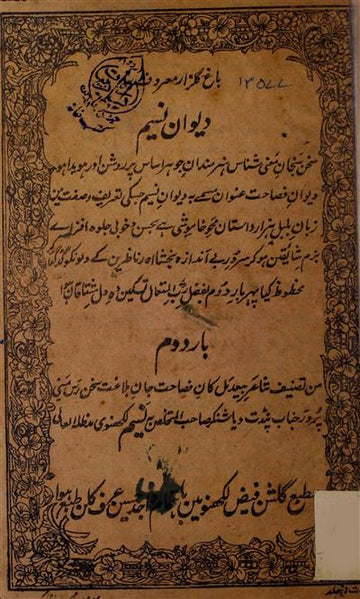 باغ گلزار معروف
۱۳۵۷۷
دیوان نسیم
سخن سنجان معنی شناس ہنرمندان جوہر اساس پر روشن اور ہویدا ہو
دیوان فصاحت عنوان مسمی بہ دیوان نسیم جسکی تعریف وصفت مین
زبان بلبل ہزار داستان محو خاموشی ہے بحسن و خوبی جلوہ افزاے
بزم شایقین ہو کر سرور بے اندازہ بخشا اور ناظرین کے دلونکو
محظوظ کیا پھر بار دوم بفضل رب المتعال تسکین دہ دل مشتاقان
بار دوم
من تصنیف شاعر بیعدیل کان فصاحت جان بلاغت سخن رس معنی
پرور جناب پنڈت دیا شنکر صاحب المتخلص نسیم لکھنوی مدظلہ العالی
مطبع گلشن فیض لکھنو مین